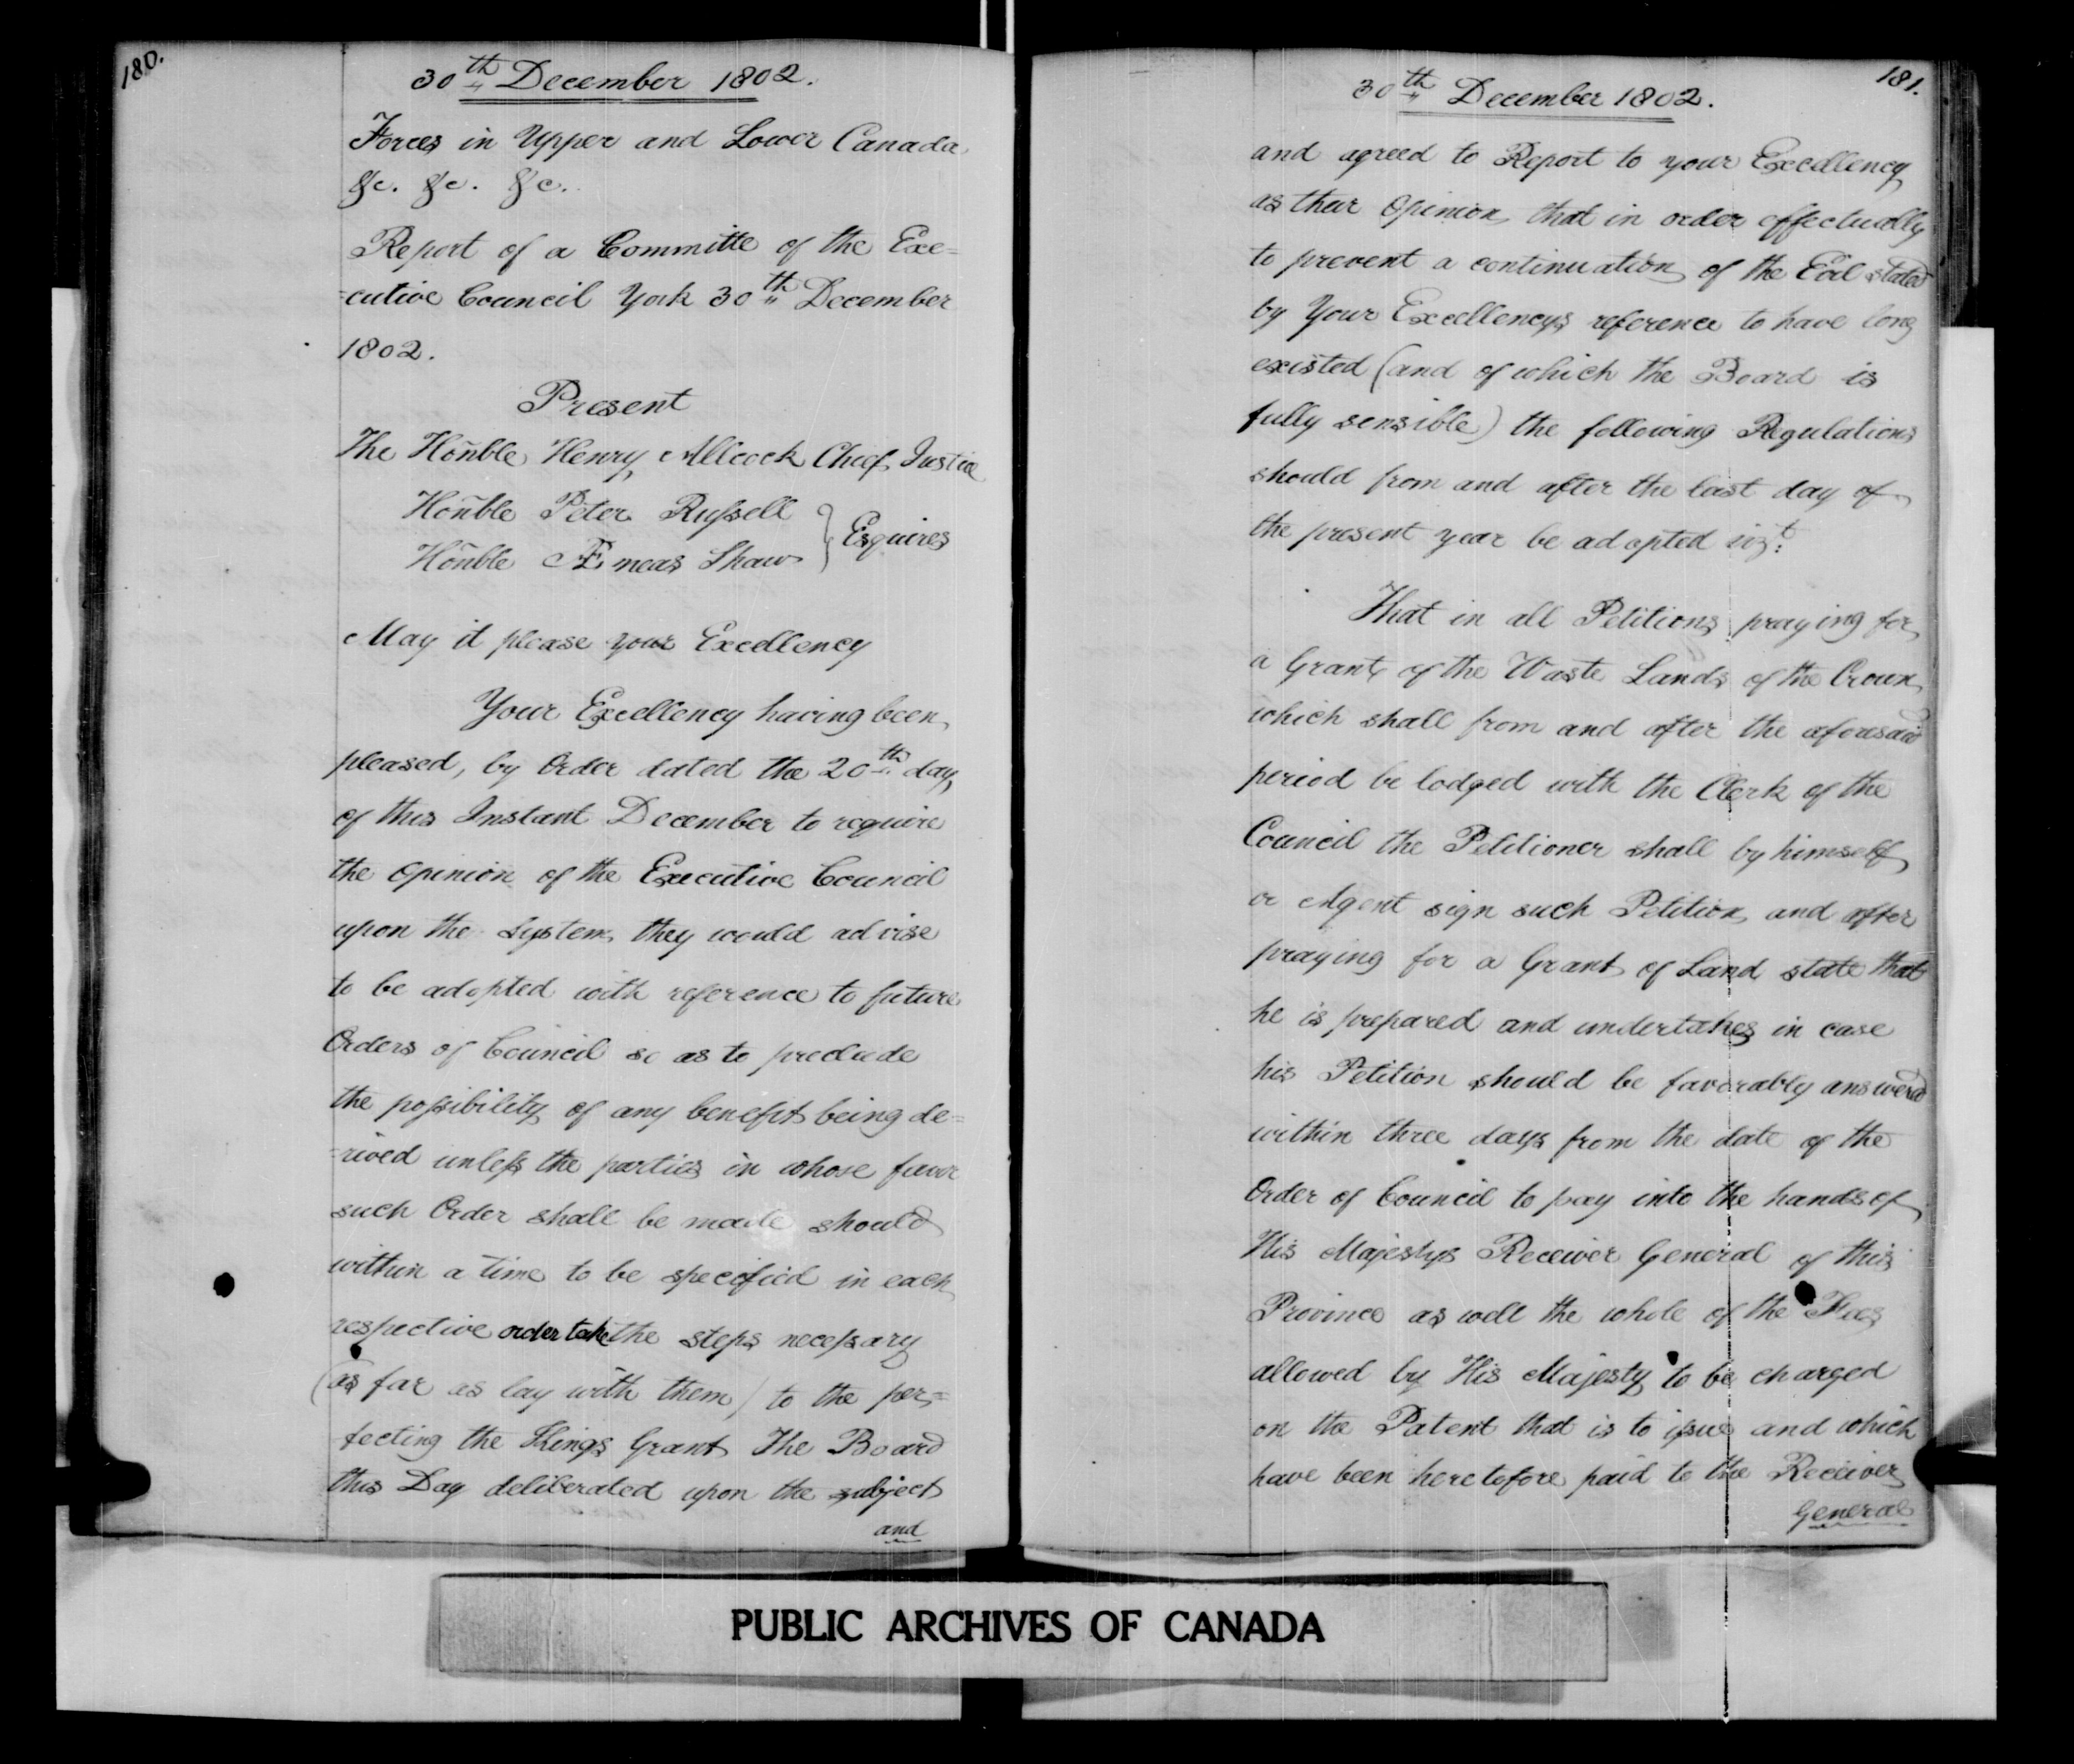 180.
30th December 1802.
Forces in Upper and Lower Canada
&c. &c. &c.
Report of a Committe of the Exe=
=cutive Council York 30th December
1802.
Present
The Honble Henry Allcock Chief Justice
Honble Peter Russell
Honble Æneas Shaw } Esquires
May it please your Excellency
Your Excellency having been
pleased, by Order dated the 20th day
of this Instant December to require
the opinion of the Executive Council
upon the System they would advise
to be adopted with reference to future
Orders of Council so as to preclude
the possibility of any benefit being de=
=rived unless the parties in whose favor
such Order shall be made should
within a time to be specified in each
respective order take the steps necessary
(as far as lay with them) to the per=
fecting the Kings Grant The Board
this Day deliberated upon the subject
and
181.
30th December 1802.
and agreed to Report to your Excellency
as their Opinion that in order effectually
to prevent a continuation of the Evil stated
by Your Excellencys reference to have long
existed (and of which the Board is
fully sensible) the following Regulations
should from and after the last day of
the present year be adopted vizt:
That in all Petitions praying for
a Grant of the Waste Lands of the Crown
which shall from and after the aforesaid
period be lodged with the Clerk of the
Council the Petitioner shall by himself
or Agent sign such Petition and after
praying for a Grant of Land state that
he is prepared and undertakes in case
his Petition should be favorably answered
within three days from the date of the
Order of Council to pay into the hands of
His Majestys Receiver General of this
Province as well the whole of the Fees
allowed by His Majesty to be charged
on the Patent that is to issue and which
have been heretofore paid to the Receiver
General
PUBLIC ARCHIVES OF CANADA